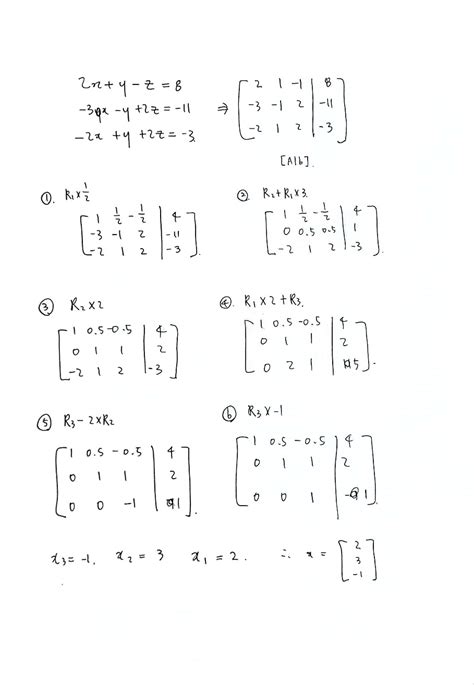 2x+y-z=8
-3x-y+2z=-11 ⇒ [2 1 -1 | 8; -3 -1 2 | -11; -2 1 2 | -3]
-2x+y+2z=-3
[A|b].
①. R₁×1/2
[1 1/2 -1/2 | 4; -3 -1 2 | -11; -2 1 2 | -3].
② R₂+R₁×3.
[1 1/2 -1/2 | 4; 0 0.5 0.5 | 1; -2 1 2 | -3].
③ R₂×2
[1 0.5 -0.5 | 4; 0 1 1 | 2; -2 1 2 | -3]
④. R₁×2+R₃.
[1 0.5 -0.5 | 4; 0 1 1 | 2; 0 2 1 | 5].
⑤ R₃-2×R₂
[1 0.5 -0.5 | 4; 0 1 1 | 2; 0 0 -1 | 1].
⑥ R₃×-1
[1 0.5 -0.5 | 4; 0 1 1 | 2; 0 0 1 | -1].
x₃=-1, x₂=3 x₁=2. ∴ x=[2; 3; -1]